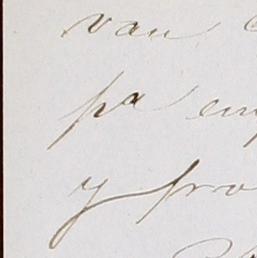 van
pa em
y pro